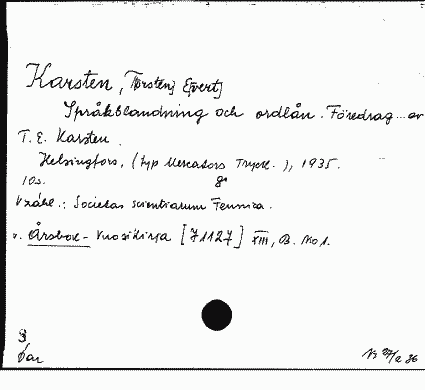 Karsten, T[orsten] E[vert]
Språkblandning och ordlån. Föredrag ... av
T. E. Karsten.
Helsingfors, (typ Mercators Tryck.), 1935.
10s. 8°
V záhl.: Societas scientiarum Fennica.
v. Årsbok - Vuosikirja [71127] XIII, B. No 1.
dar